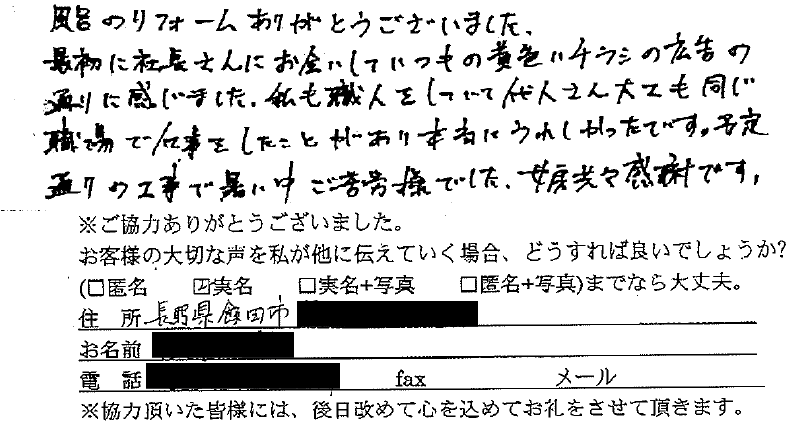 風呂のリフォームありがとうございました、
最初に社長さんにお会いしていつもの黄色いチラシの広告の
通りに感じました。私も職人をしていて代人さん大工も同じ
職場で仕事をしたことがあり本当にうれしかったです。予定
通りの工事で暑い中ご苦労様でした、女房共々感謝です。
※ご協力ありがとうございました。
お客様の大切な声を私が他に伝えていく場合、どうすれば良いでしょうか?
(□匿名 ☑実名 □実名+写真 □匿名+写真)までなら大丈夫。
住 所 長野県飯田市
お名前
電 話 fax メール
※協力頂いた皆様には、後日改めて心を込めてお礼をさせて頂きます。